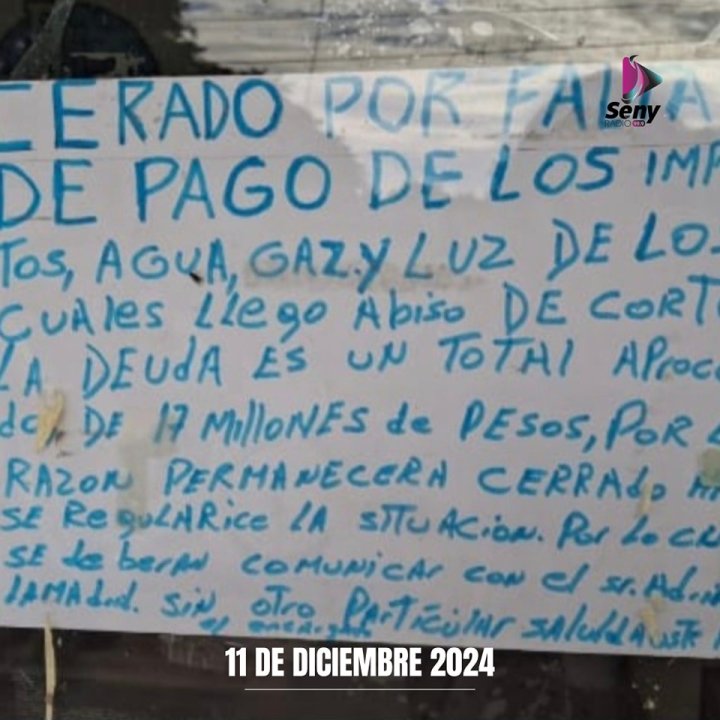 CERADO POR FALTA
DE PAGO DE LOS IMP
TOS, AGUA, GAZ.Y LUZ DE LOS
CUALES LLEGO ABISO DE CORT
LA DEUDA ES UN TOTAL APROC
DE 17 MILLONES de PESOS, POR
RAZON PERMANECERA CERRADO
SE REGULARICE LA SITUACION. POR LO
SE deberan COMUNICAR CON el sr.
LAMAdrid. SIN OTRO PARTICULAR
Seny
RADIO
11 DE DICIEMBRE 2024